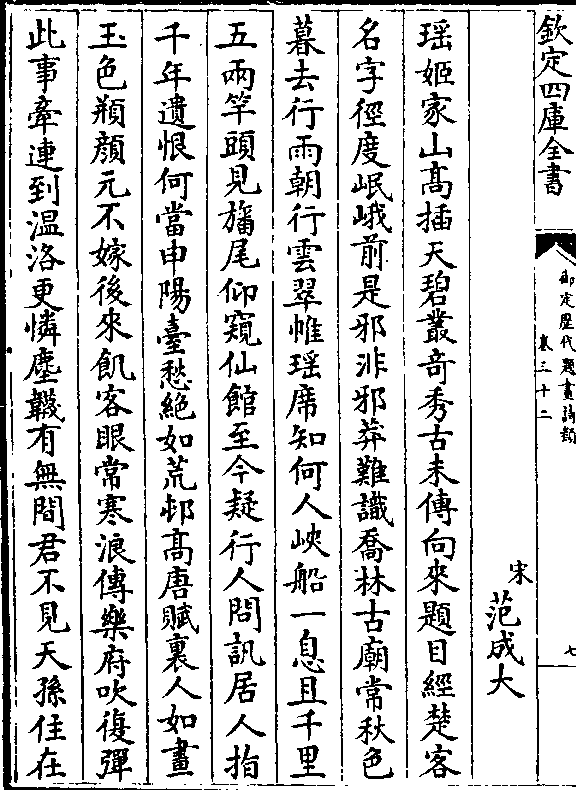 欽定四庫全書
御定歷代題畫詩類
卷三十二
七
宋
范成大
瑶姬家山髙插天碧叢奇秀古未傳向來題目經楚客
名字徑度岷峨前是邪非邪莽難識喬林古廟常秋色
暮去行雨朝行雲翠帷瑶席知何人峽船一息且千里
五兩竿頭見旛尾仰窺仙館至今疑行人問訊居人指
千年遺恨何當申陽臺愁絶如荒邨髙唐賦裏人如畫
玉色頩顔元不嫁後來飢客眼常寒浪傳樂府吹復彈
此事牽連到温洛更憐塵韈有無間君不見天孫住在